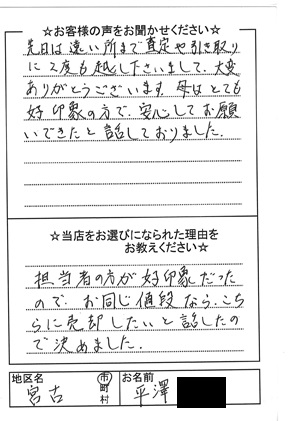 ☆お客様の声をお聞かせください☆
先日は遠い所まで査定や引き取り
に2度も越し下さいまして、大変
ありがとうございます。母はとても
好印象の方で、安心してお願
いできたと話しておりました。
☆当店をお選びになられた理由を
お教えください☆
担当者の方が好印象だった
ので、お同じ値段なら、こち
らに売却したいと話したの
で決めました。
地区名
宮古
市
町
村
お名前
平澤